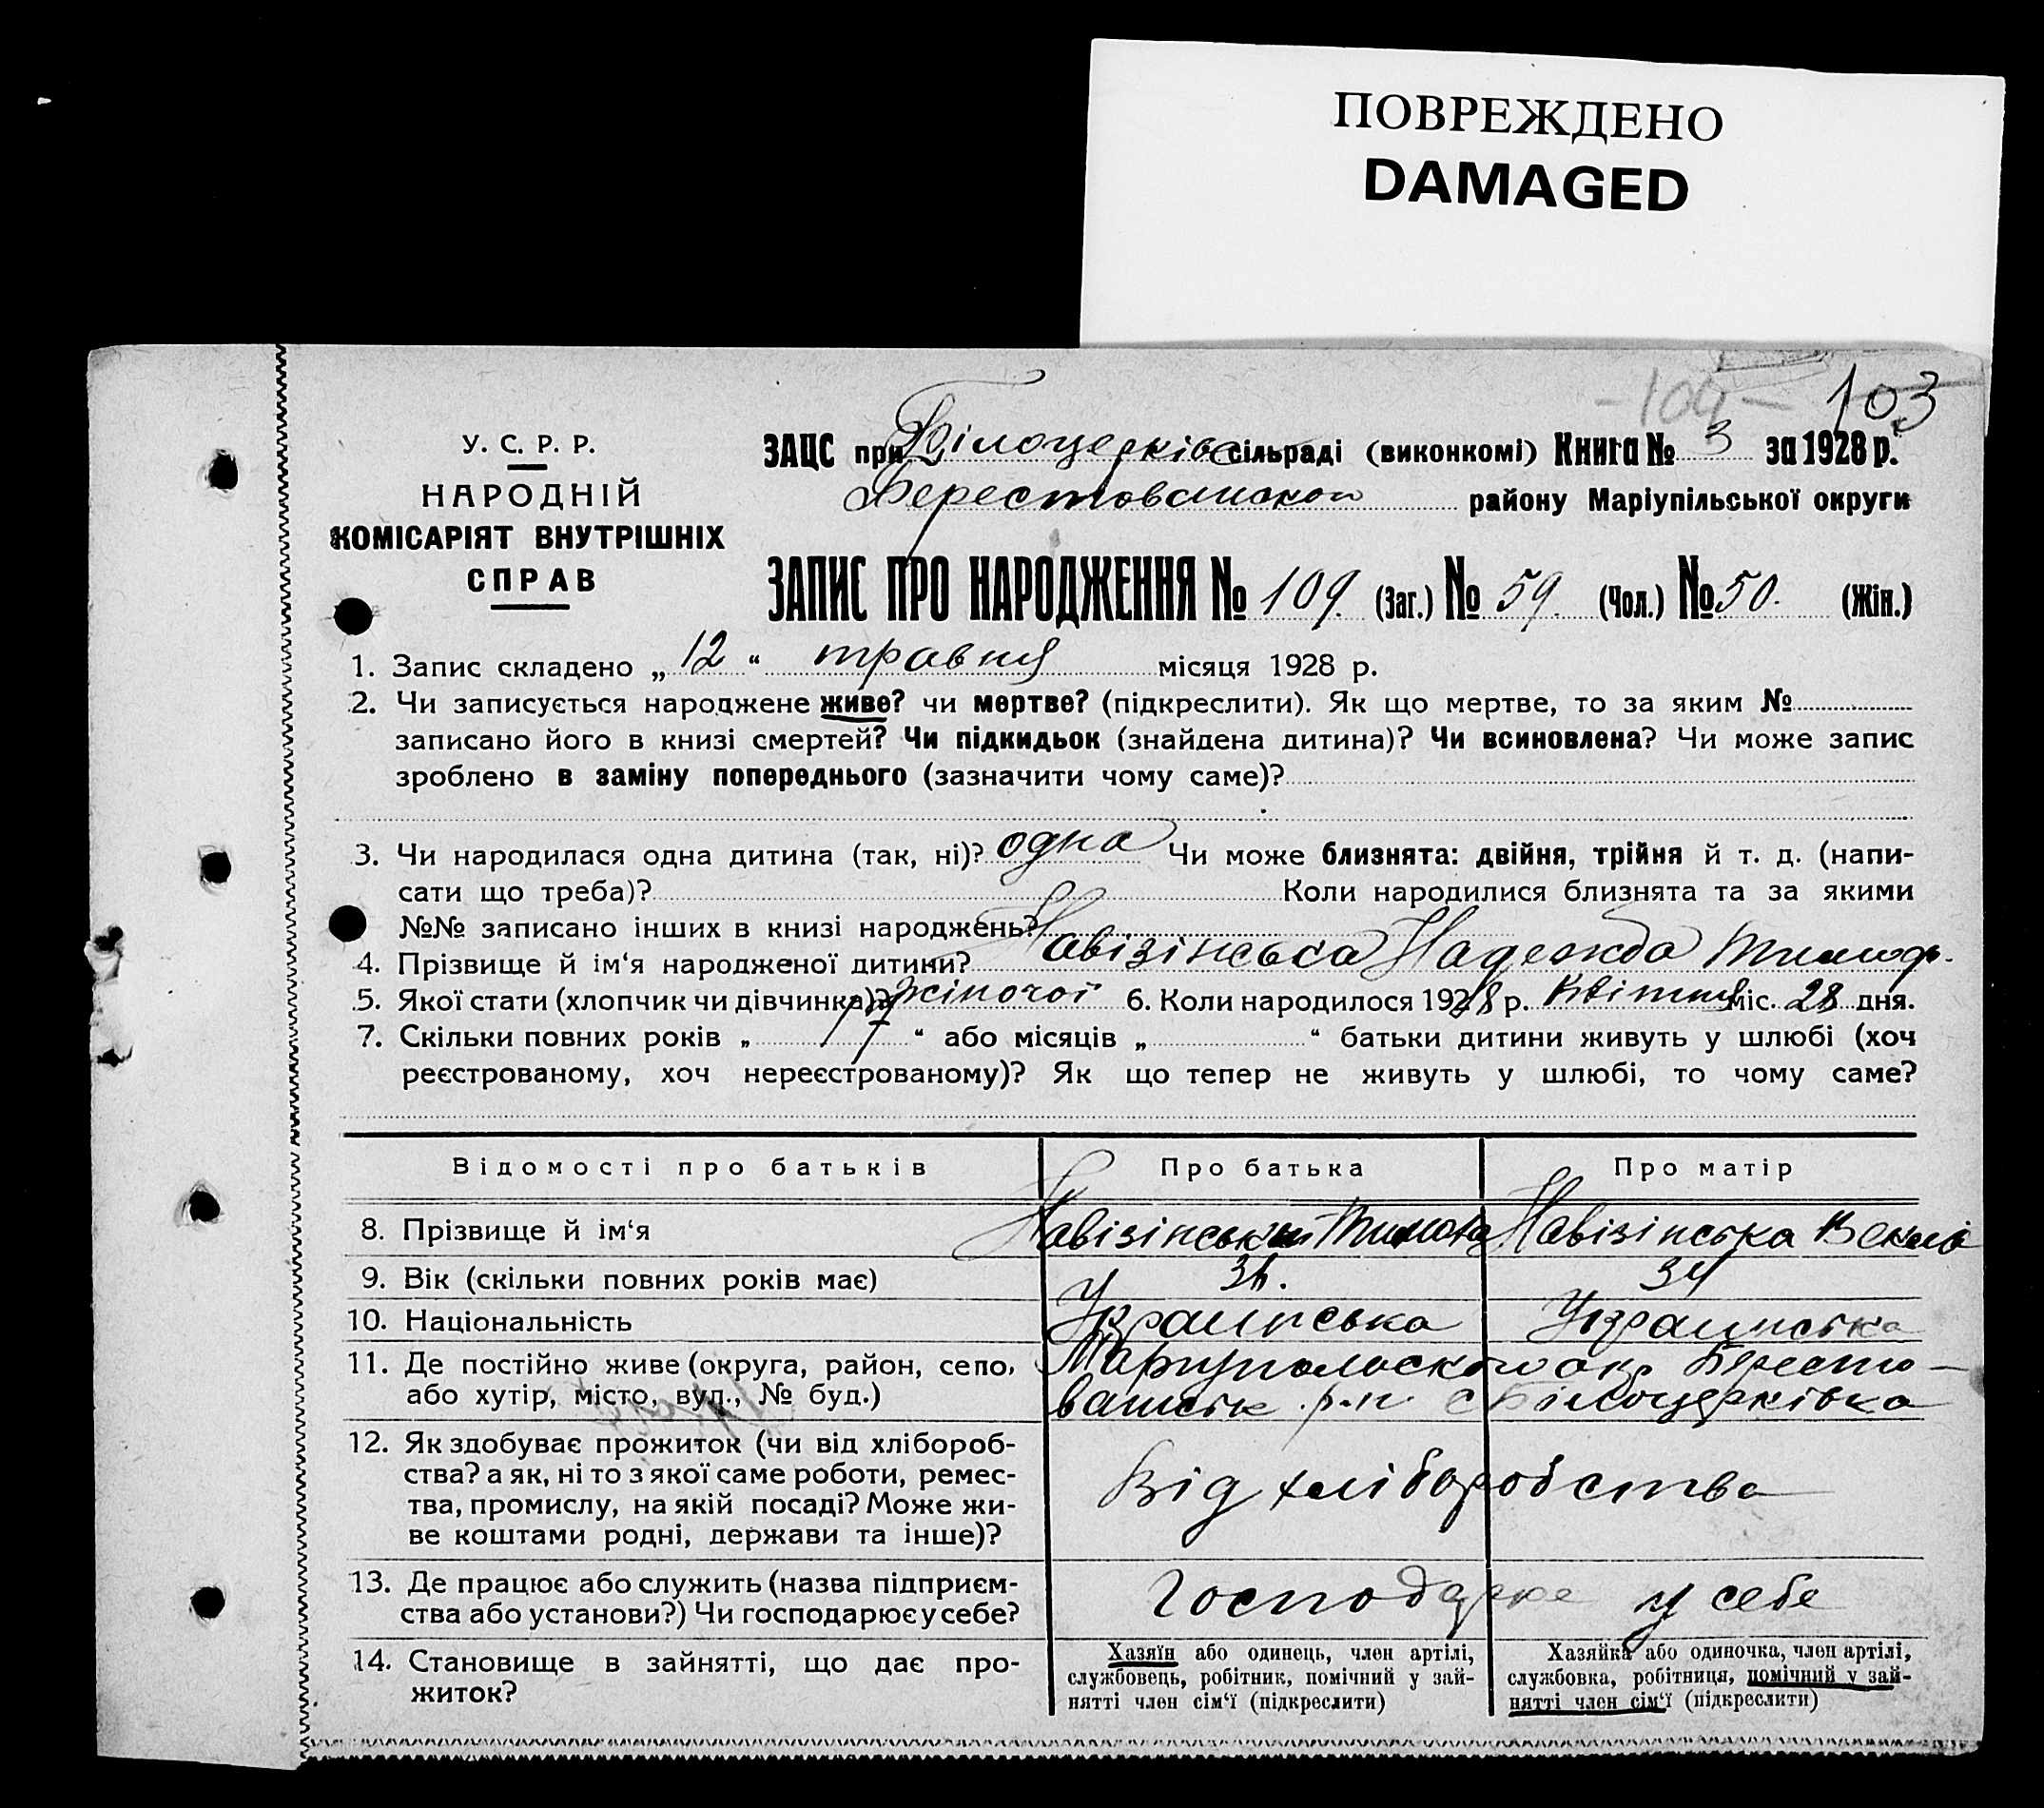 ПОВРЕЖДЕНО
DAMAGED
-104- 103
У. С. Р. Р.
НАРОДНІЙ
КОМІСАРІЯТ ВНУТРІШНІХ
СПРАВ
ЗАЦС при Білоцерківс сільраді (виконкомі) Книга № 3 за 1928 р.
району Маріупільської округи
ЗАПИС ПРО НАРОДЖЕННЯ № 109. (Заг.) № 59. (Чол.) № 50. (Жін.)
1. Запис складено „ 12 “ травня місяця 1928 р.
2. Чи записується народжене живе? чи мертве? (підкреслити). Як що мертве, то за яким №
записано його в книзі смертей? Чи підкидьок (знайдена дитина)? Чи всиновлена? Чи може запис
зроблено в заміну попереднього (зазначити чому саме)?
3. Чи народилася одна дитина (так, ні)? одна Чи може близнята: двійня, трійня й т. д. (напи-
сати що треба)? Коли народилися близнята та за якими
№№ записано інших в книзі народжень?
4. Прізвище й ім‘я народженої дитини? Навізінська Надежда Тимоф.
5. Якої стати (хлопчик чи дівчинка)? жіночої 6. Коли народилося 1928 р. Квітня міс. 28 дня.
7. Скільки повних років „ 17 “ або місяців „ “ батьки дитини живуть у шлюбі (хоч
реєстрованому, хоч нереєстрованому)? Як що тепер не живуть у шлюбі, то чому саме?
Відомості про батьків Про батька Про матір
8. Прізвище й ім‘я Навізінський Навізінська
9. Вік (скільки повних років має) 34
10. Національність Украинська Украинська
11. Де постійно живе (округа, район, село, Бересто-
або хутір, місто, вул., № буд.) р-н с Білоцерківка
12. Як здобуває прожиток (чи від хлібороб-
ства? а як, ні то з якої саме роботи, ремес-
тва, промислу, на якій посаді? Може жи-
ве коштами родні, держави та інше)?
Від хліборобства
13. Де працює або служить (назва підприєм-
ства або установи?) Чи господарює у себе?
Господарює у себе
14. Становище в зайнятті, що дає про-
житок?
Хазяїн або одинець, член артілі,
службовець, робітник, помічний у зай-
нятті член сім‘ї (підкреслити)
Хазяйка або одиночка, член артілі,
службовка, робітниця, помічний у зай-
нятті член сім‘ї (підкреслити)